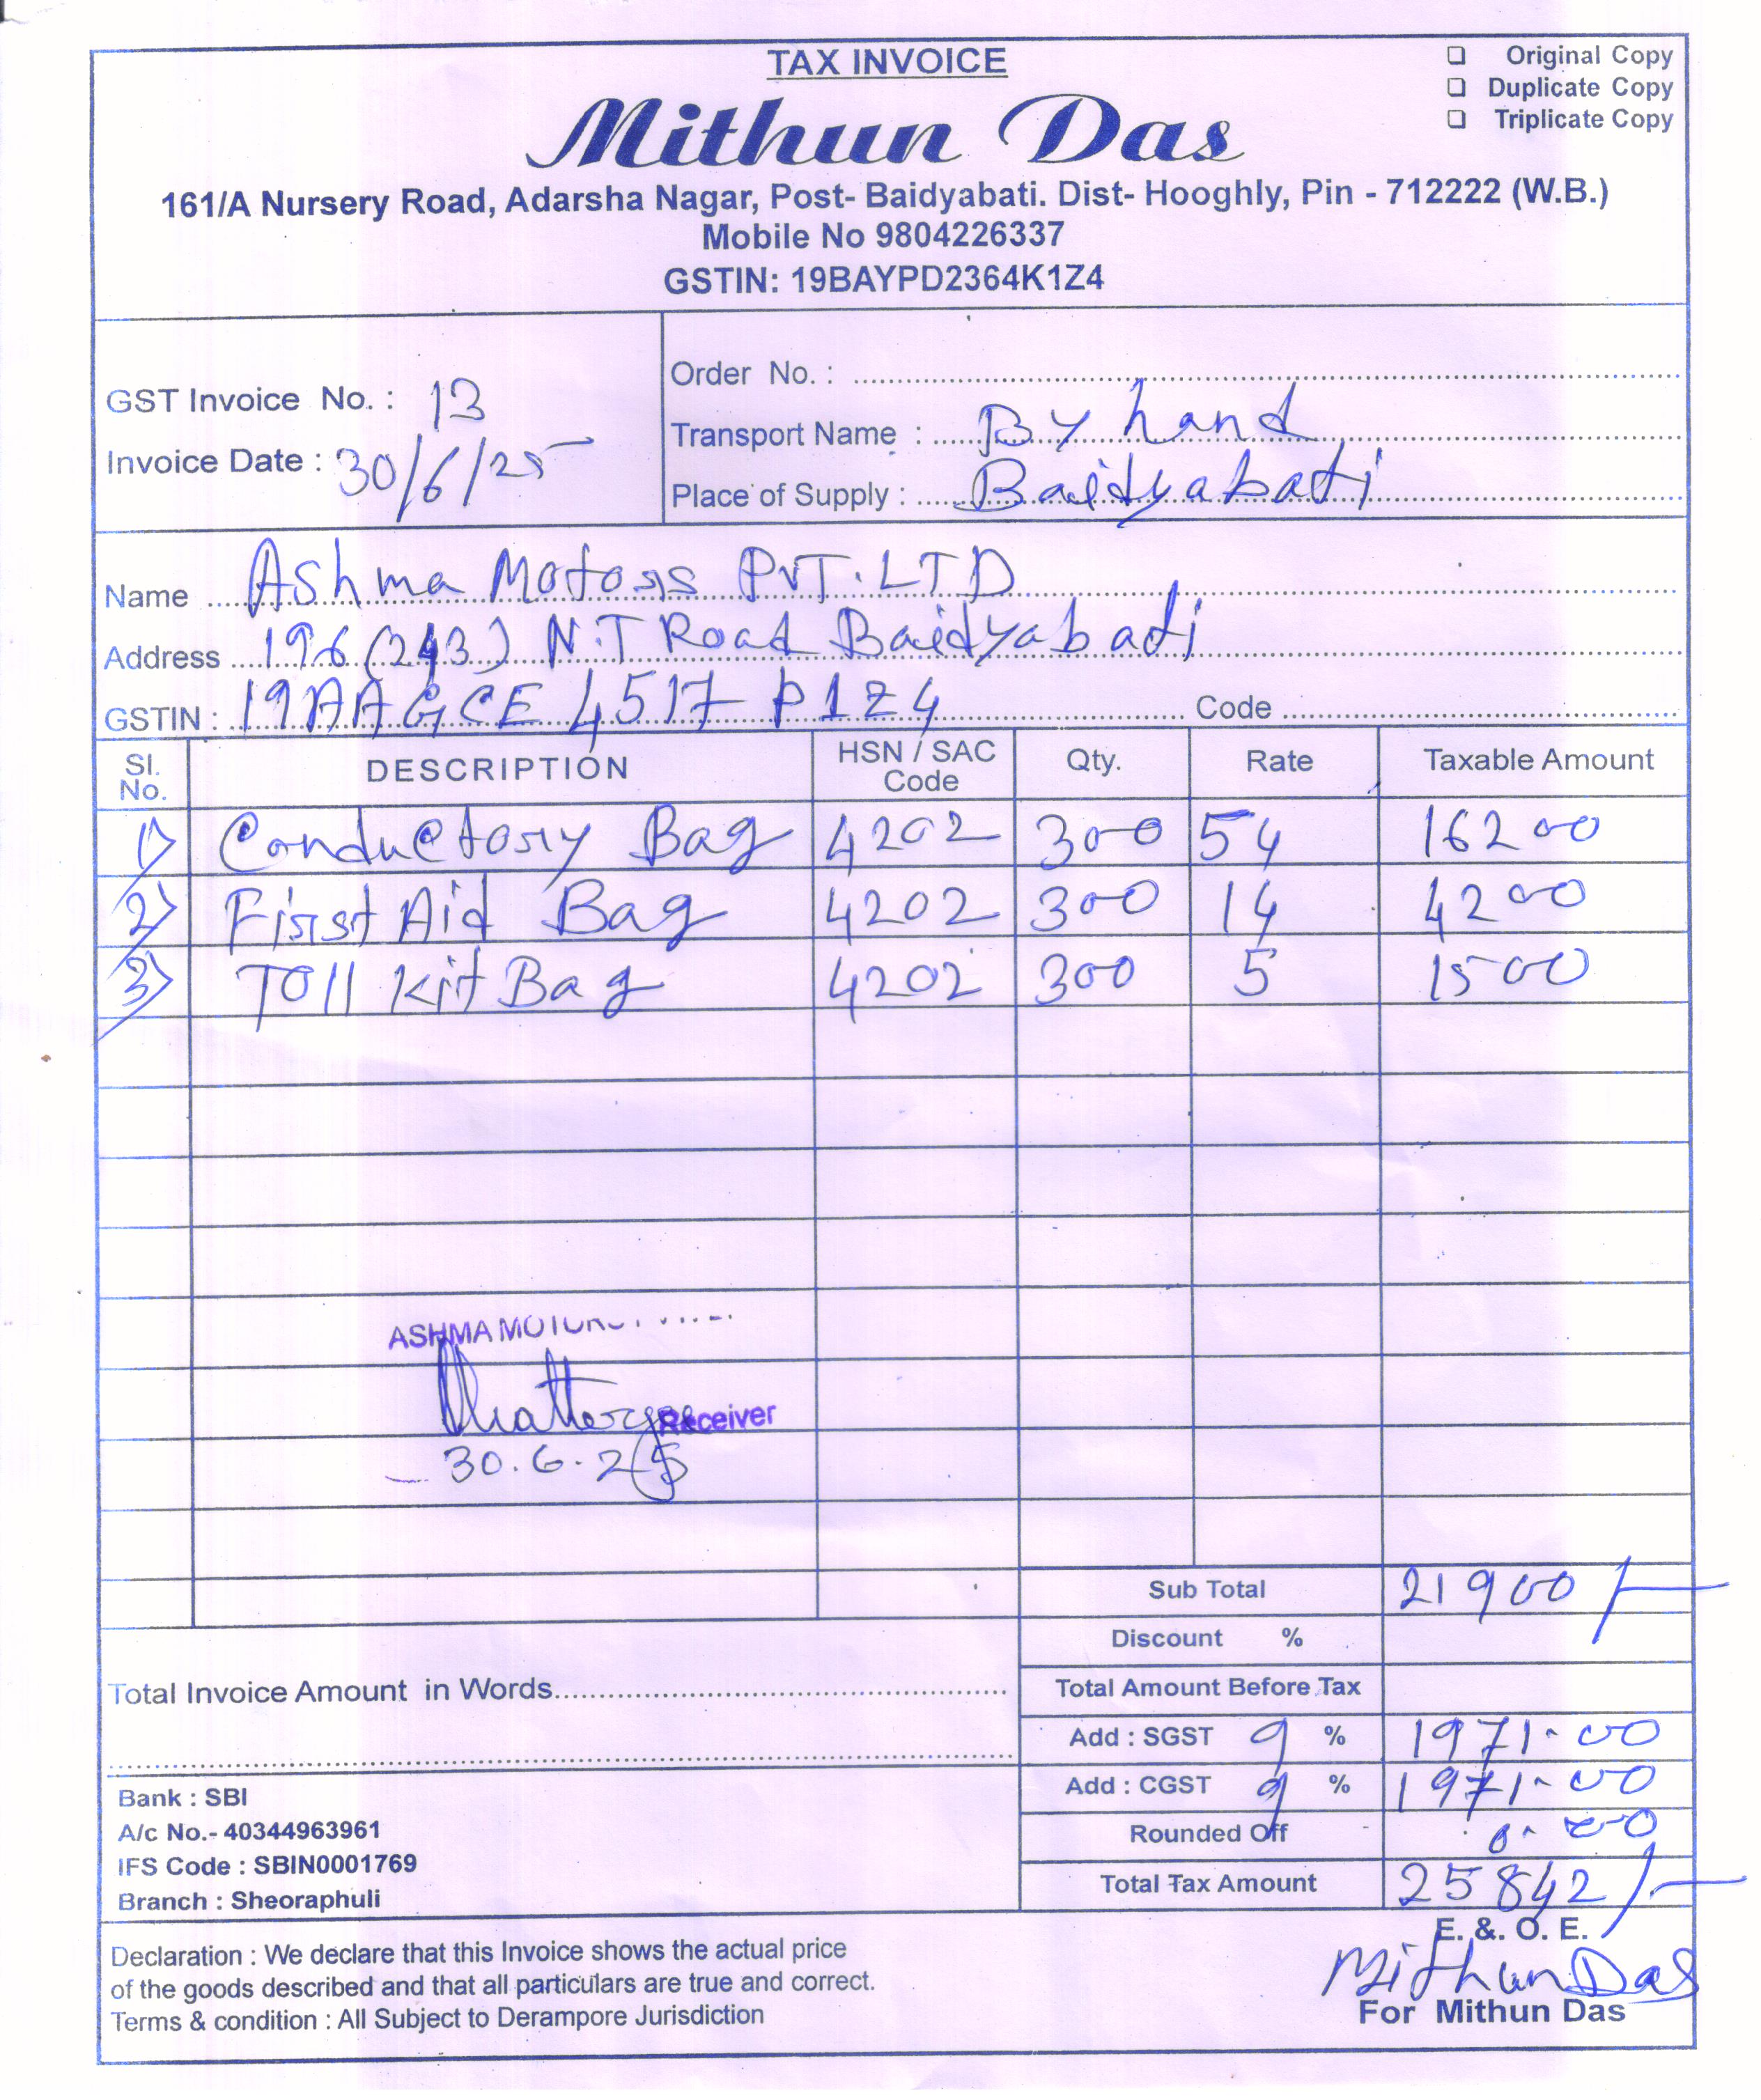 TAX INVOICE
❑ Original Copy
❑ Duplicate Copy
❑ Triplicate Copy
Mithun Das
161/A Nursery Road, Adarsha Nagar, Post- Baidyabati. Dist- Hooghly, Pin - 712222 (W.B.)
Mobile No 9804226337
GSTIN: 19BAYPD2364K1Z4
GST Invoice No. : 13
Invoice Date : 30/6/25
Order No. :
Transport Name : By hand
Place of Supply : Baidyabati
Name Ashma Motors PVT.LTD
Address 196 (243) N.T Road Baidyabati
GSTIN : 19AAGCE4517P1Z4 Code
Sl. No. DESCRIPTION HSN / SAC Code Qty. Rate Taxable Amount
1) Conductory Bag 4202 300 54 16200
2) First Aid Bag 4202 300 14 4200
3) Toll Kit Bag 4202 300 5 1500
ASHMA MOTORS
Chatterjee Receiver
30.6.25
Sub Total 21900/-
Discount %
Total Invoice Amount in Words
Total Amount Before Tax
Add : SGST 9 % 1971-00
Add : CGST 9 % 1971-00
Rounded Off 0-00
Total Tax Amount 25842/-
Bank : SBI
A/c No.- 40344963961
IFS Code : SBIN0001769
Branch : Sheoraphuli
E. &. O. E.
Declaration : We declare that this Invoice shows the actual price
of the goods described and that all particulars are true and correct.
Terms & condition : All Subject to Derampore Jurisdiction
Mithun Das
For Mithun Das